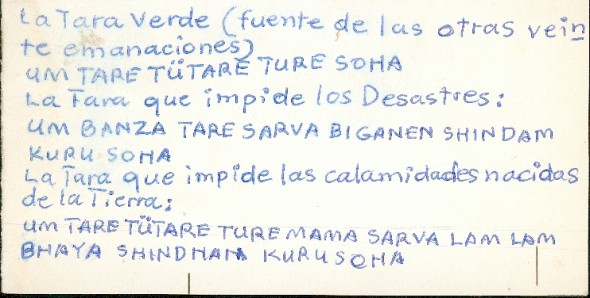 La Tara Verde (fuente de las otras vein
te emanaciones)
UM TARE TÜTARE TURE SOHA
La Tara que impide los Desastres:
UM BANZA TARE SARVA BIGANEN SHINDAM
KURU SOHA
La Tara que impide las calamidades nacidas
de la Tierra:
UM TARE TÜTARE TURE MAMA SARVA LAM LAM
BHAYA SHINDHAN KURU SOHA